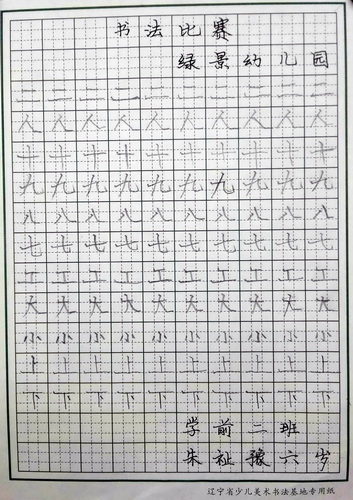 书法比赛
绿景幼儿园
二二二二二二二二二二
人人人人人人人人人人
十十十十十十十十十十
九九九九九九九九九九
八八八八八八八八八八
七七七七七七七七七七
工工工工工工工工工工
大大大大大大大大大大
小小小小小小小小小小
上上上上上上上上上上
下下下下下下下下下下
学前二班
朱祉豫六岁
辽宁省少儿美术书法基地专用纸